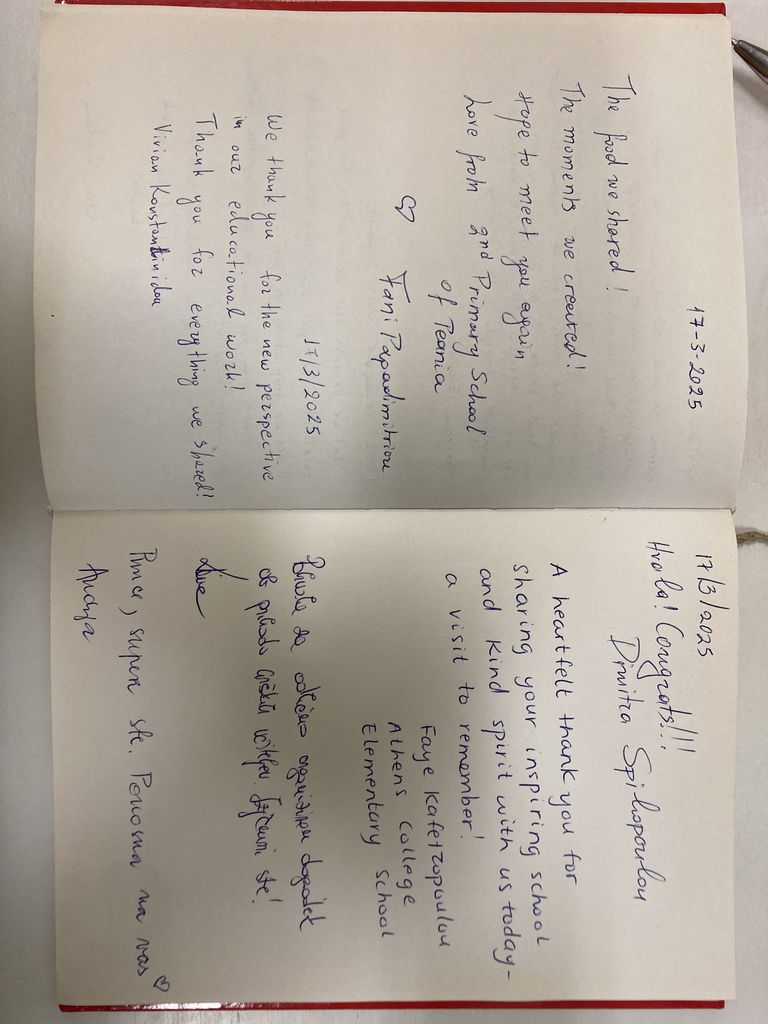 17-3-2025
The food we shared!
The moments we created!
Hope to meet you again
Love from 2nd Primary School
of Peania
♡ Fani Papadimitriou
17/3/2025
We thank you for the new perspective
in our educational work!
Thank you for everything we shared!
Vivian Konstantinidou
17/3/2025
Hvala! Congrats!!!
Dimitra Spiliopoulou
A heartfelt thank you for
sharing your inspiring school
and kind spirit with us today-
a visit to remember!
Faye Kafetzopoulou
Athens College
Elementary School
Hvala za odlično organiziran događaj
ste!
super ste. Ponosna na vas ♡